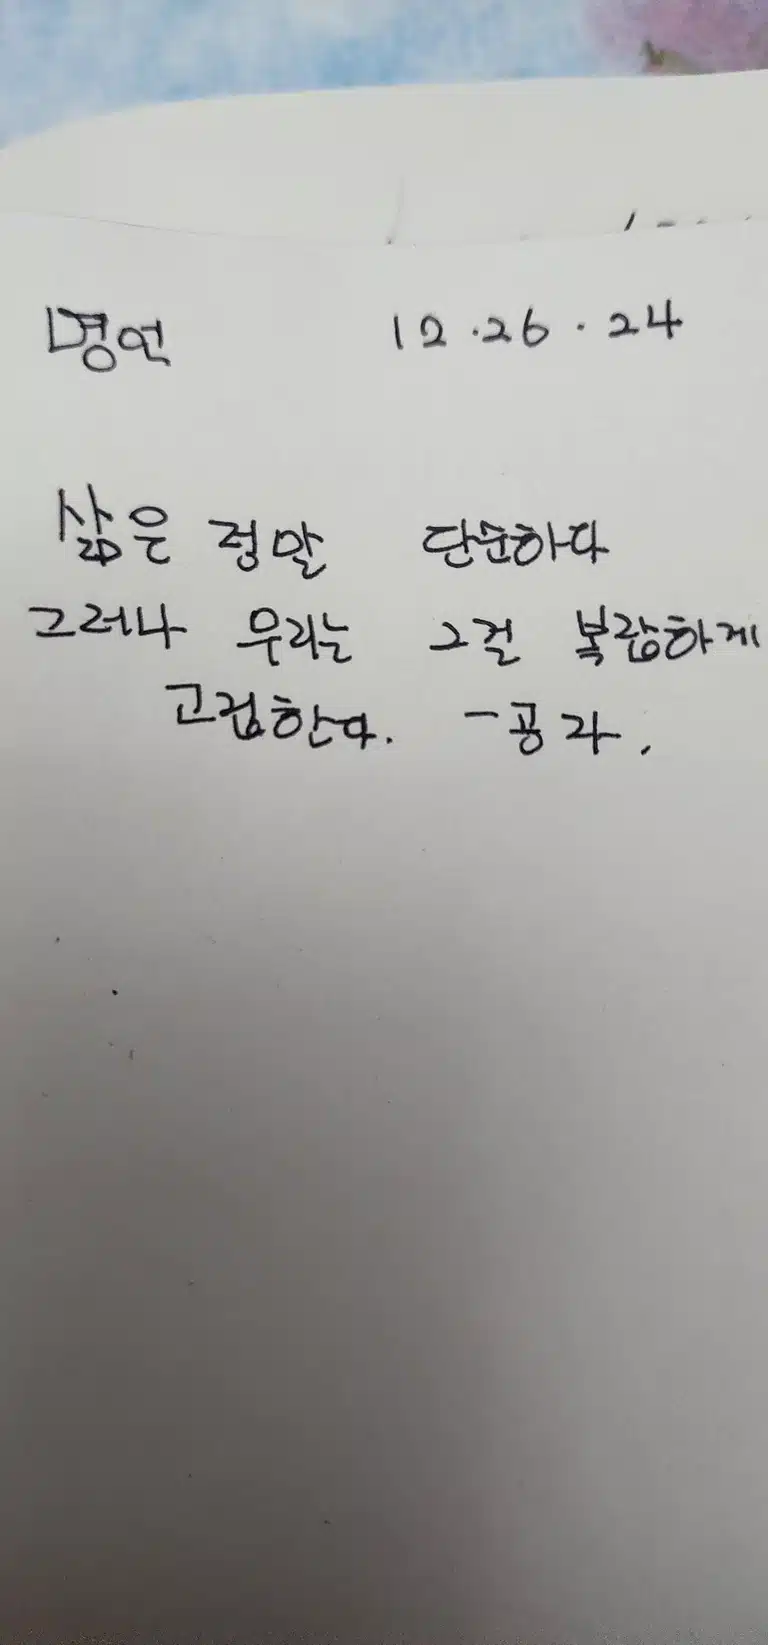 명언 12.26.24
삶은 정말 단순하다
그러나 우리는 그걸 복잡하게
고집한다. -공자.